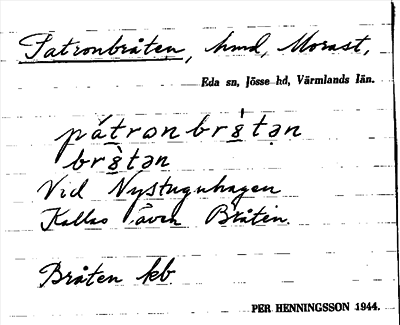 Patronbråten, hmd, Morast,
Eda sn, Jösse hd, Värmlands län.
pátronbrɷ̀tən
brɷ̀tən
Vid Nystuguhagen
Kallas även Bråten.
Bråten kb
PER HENNINGSSON 1944.